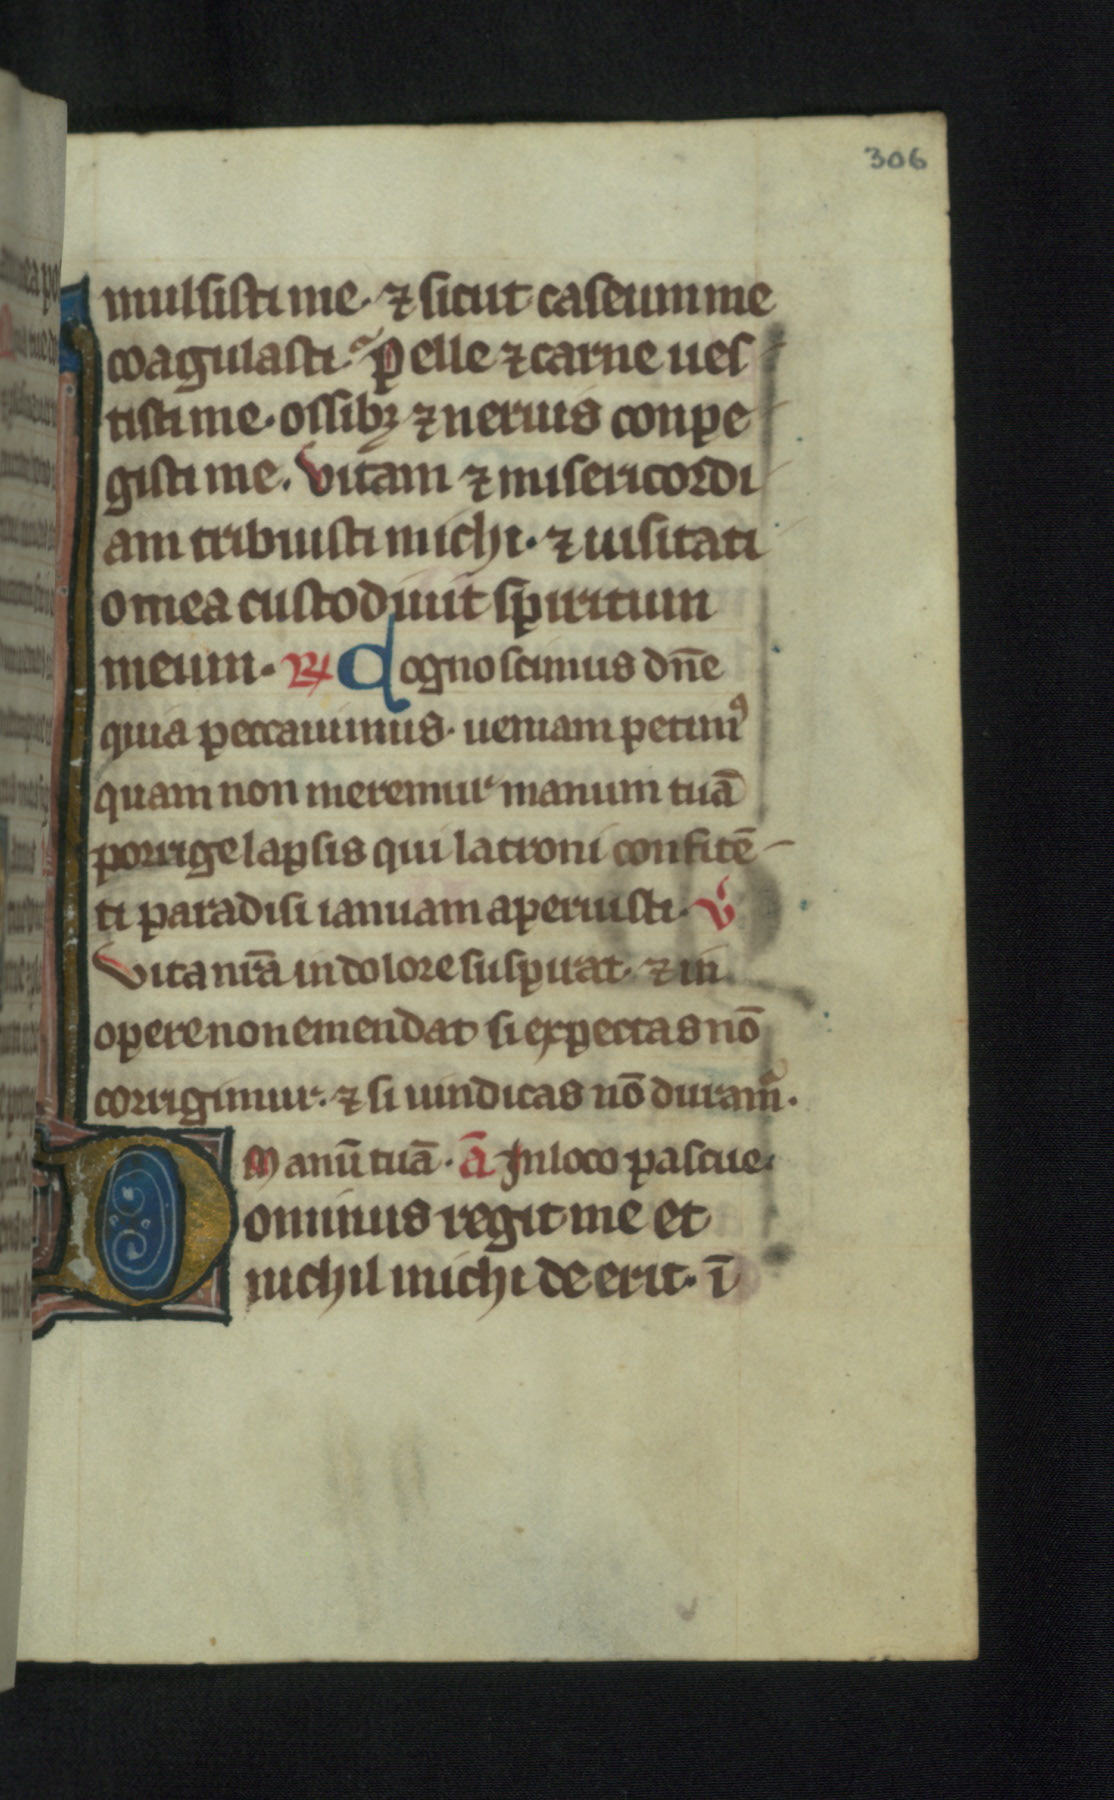 306
mulsisti me. ⁊ sicut caseum me
coagulasti. Pelle ⁊ carne ues
tisti me. ossibꝫ ⁊ neruis conpe
gisti me. Vitam ⁊ misericordi
am tribuisti michi. ⁊ uisitati
o mea custodiuit spiritum
meum. ℟ Cognoscimus dn̄e
quia peccauimus. ueniam petimꝰ
quam non meremur manum tuā
porrige lapsis qui latroni confitē
ti paradisi ianuam aperuisti. V
Vita nr̄a in dolore suspirat. ⁊ in
opere non emendat si expectas nō
corrigimur. ⁊ si uindicas nō duramꝰ.
Manū tuā. ā In loco pascue.
Dominus regit me et
nichil michi de erit. ī